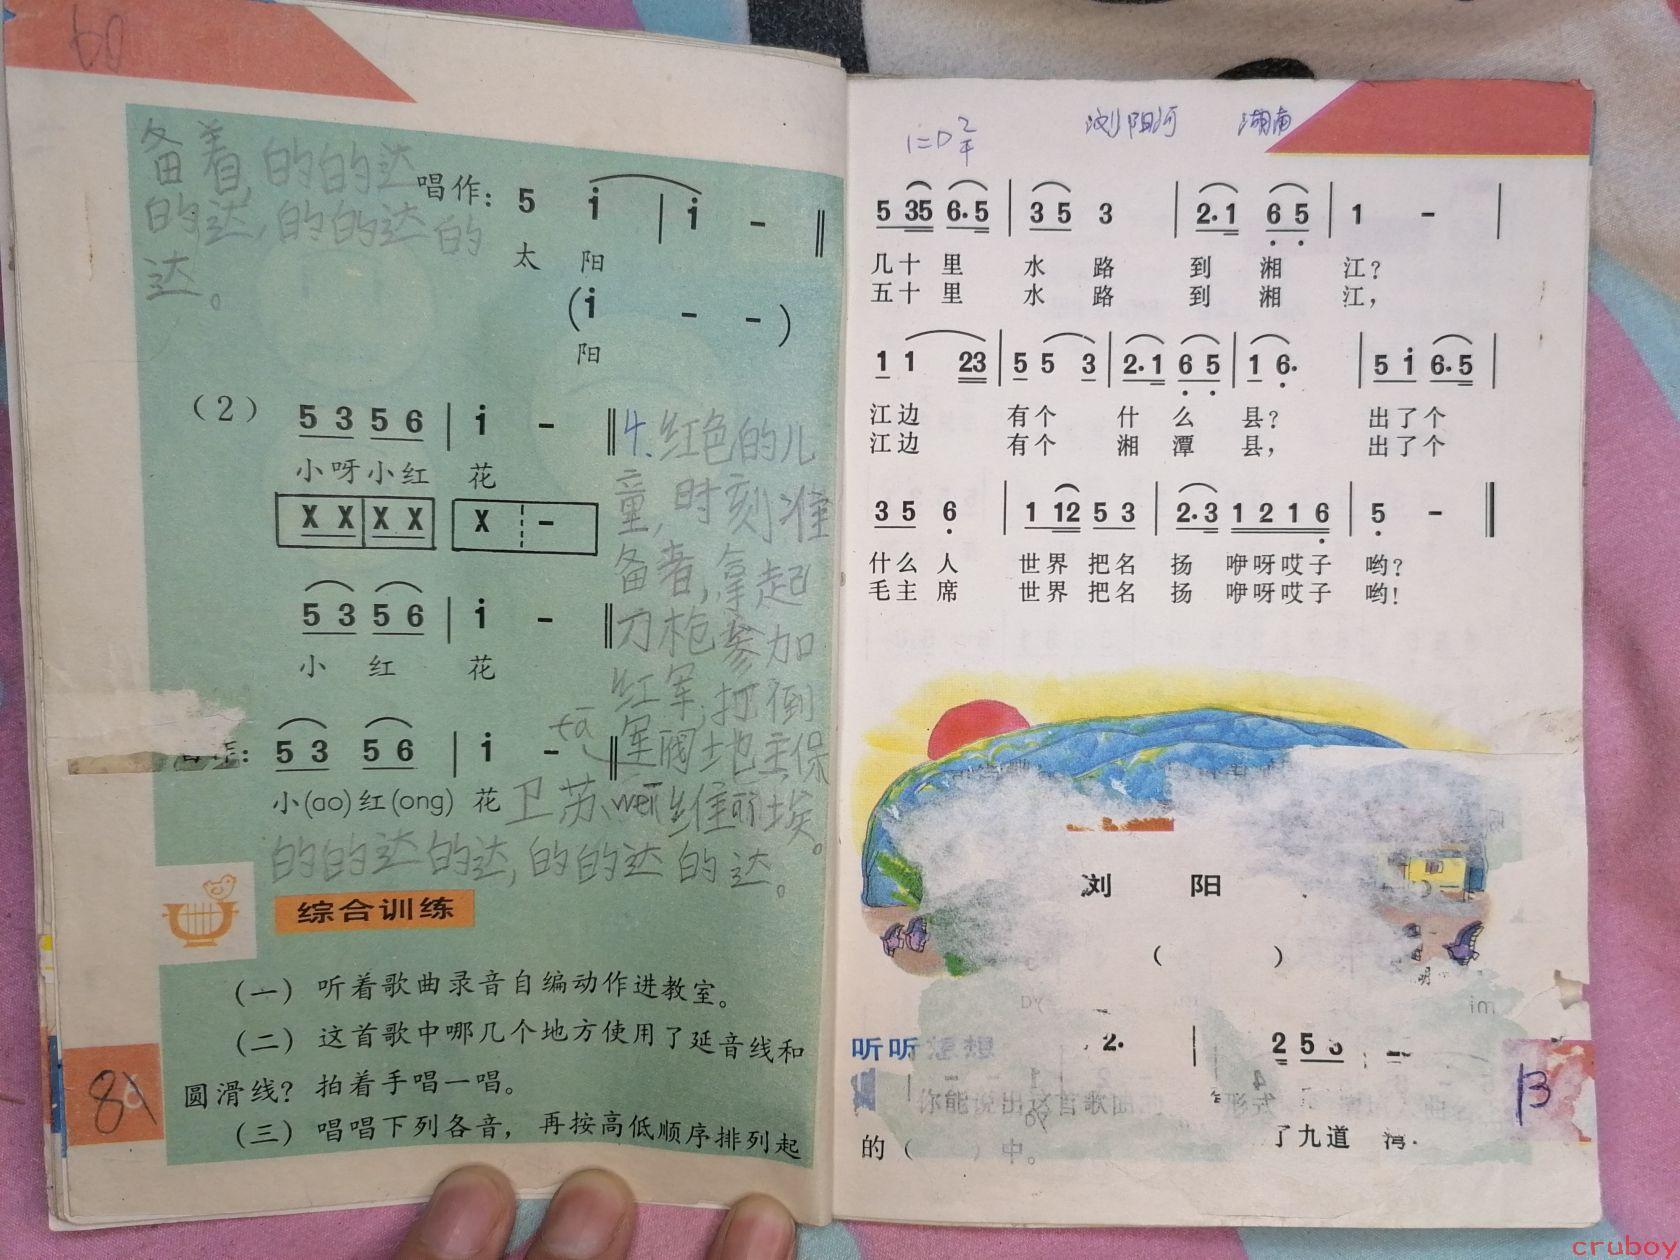 60
备着,的的达
的达,的的达的
达。
唱作: 5 i | i - ‖
太 阳
(i - - )
阳
(2) 5 3 5 6 | i - ‖
小呀小红 花
X X X X X -
5 3 5 6 | i - ‖
小 红 花
5 3 5 6 | i - ‖
小(ao)红(ong) 花
4.红色的儿
童,时刻准
备着,拿起
刀枪参加
红军,把倒
军阀土地主保
卫苏wēi维埃。
的的达的达,的的达的达。
综合训练
(一) 听着歌曲录音自编动作进教室。
(二) 这首歌中哪几个地方使用了延音线和
圆滑线? 拍着手唱一唱。
(三) 唱唱下列各音, 再按高低顺序排列起
8
浏阳河 湖南
5 35 6·5 | 3 5 3 | 2·1 6 5 | 1 - |
几十 里 水 路 到 湘 江?
五十 里 水 路 到 湘 江,
1 1 23 | 5 5 3 | 2·1 6 5 | 1 6· | 5 i 6·5 |
江边 有个 什 么 县? 出了个
江边 有个 湘 潭 县, 出了个
3 5 6 | 1 12 5 3 | 2·3 1 2 1 6 | 5 - ‖
什么 人 世界 把名 扬 咿呀哎子 哟?
毛主 席 世界 把名 扬 咿呀哎子 哟!
浏 阳
( )
听听
2· | 2 5 3
你能说出这首歌曲
形式
了九道 湾
的 ( ) 中。
13
cruboy